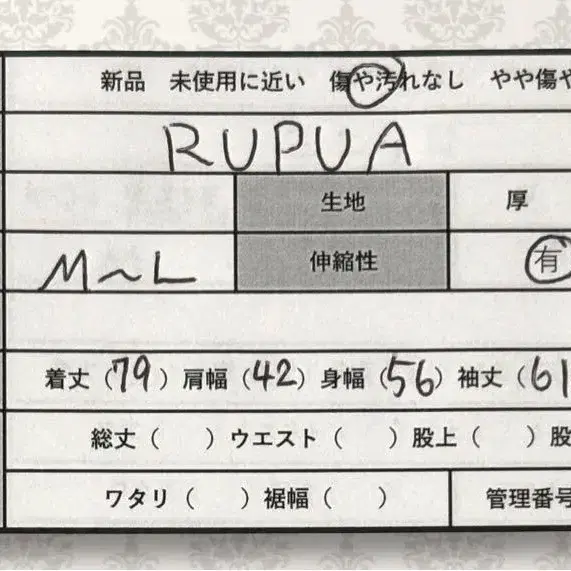 新品 未使用に近い 傷や汚れなし やや傷や
RUPUA
生地 厚
M~L 伸縮性 有
着丈(79)肩幅(42)身幅(56)袖丈(61
総丈( )ウエスト( )股上( )股
ワタリ( )裾幅( ) 管理番号